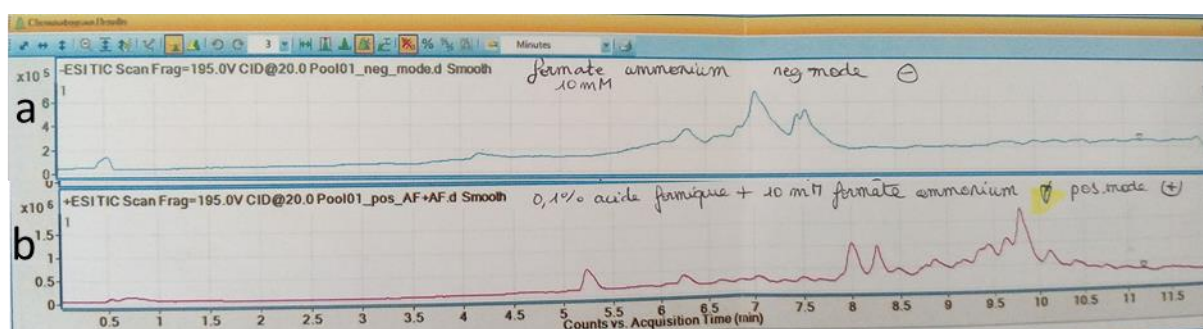 Chromatogram Results
3 % Minutes
x10 5 -ESI TIC Scan Frag=195.0V CID@20.0 Pool01_neg_mode.d Smooth formate ammonium neg mode ⊖
10 mM
1
a
6
4
2
0
x10 6 +ESI TIC Scan Frag=195.0V CID@20.0 Pool01_pos_AF+AF.d Smooth 0,1% acide formique + 10 mM formate ammonium pos.mode ⊕
1
b
1.5
1
0.5
0
0.5 1 1.5 2 2.5 3 3.5 4 4.5 5 5.5 6 6.5 7 7.5 8 8.5 9 9.5 10 10.5 11 11.5
Counts vs. Acquisition Time (min)